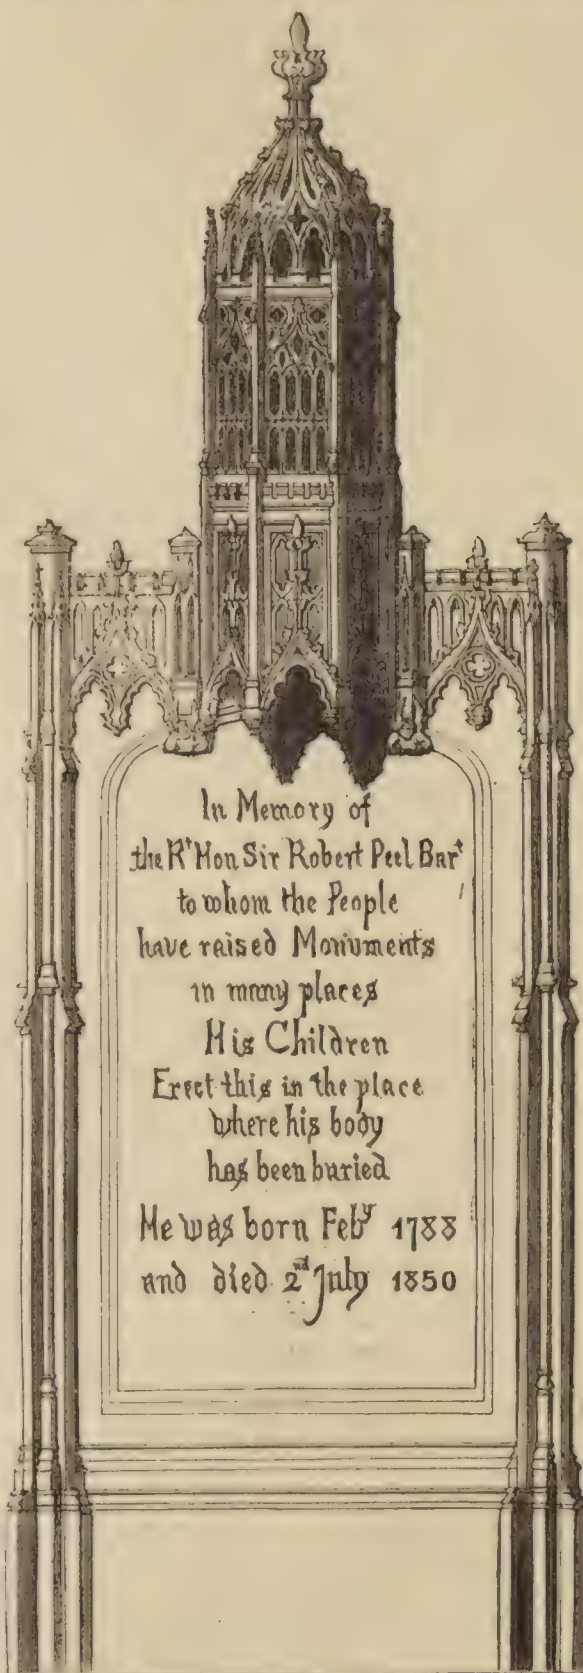 In Memory of
the Rt Hon Sir Robert Peel Bart
to whom the People
have raised Monuments
in many places
His Children
Erect this in the place
where his body
has been buried
He was born Feby 1788
and died 2nd July 1850